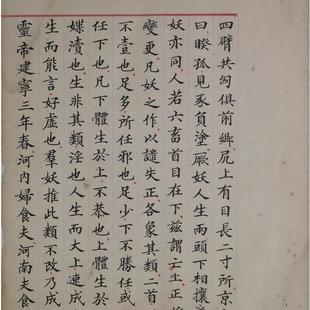 四臂共匈俱前鄉凥上有目長二寸所京
曰睽孤見豕負塗厥妖人生兩頭下相攘
妖亦同人若六畜首目在下茲謂亡上正將
變更凡妖之作以譴失正各象其類二首
不壹也足多所任邪也足少下不勝任或
任下也凡下體生於上不恭也上體生於
媟瀆也生非其類淫也人生而大上速成
生而能言好虛也羣妖推此類不改乃成
靈帝建寧三年春河內婦食夫河南夫食